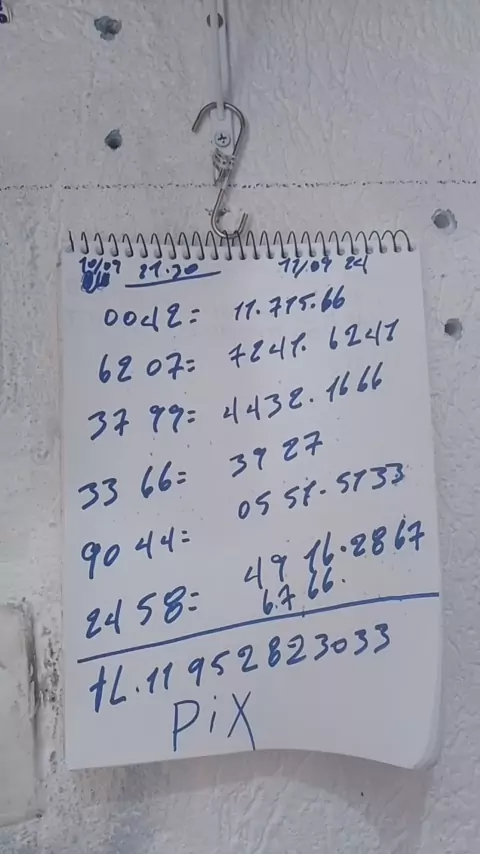 10/09 21.20 11/09 24
0042= 11.715.66
6207= 7241.6241
3799= 4432.1666
3366= 3927
9044= 0551.5133
2458= 4916.2867
6.766.
tL.11952823033
PiX